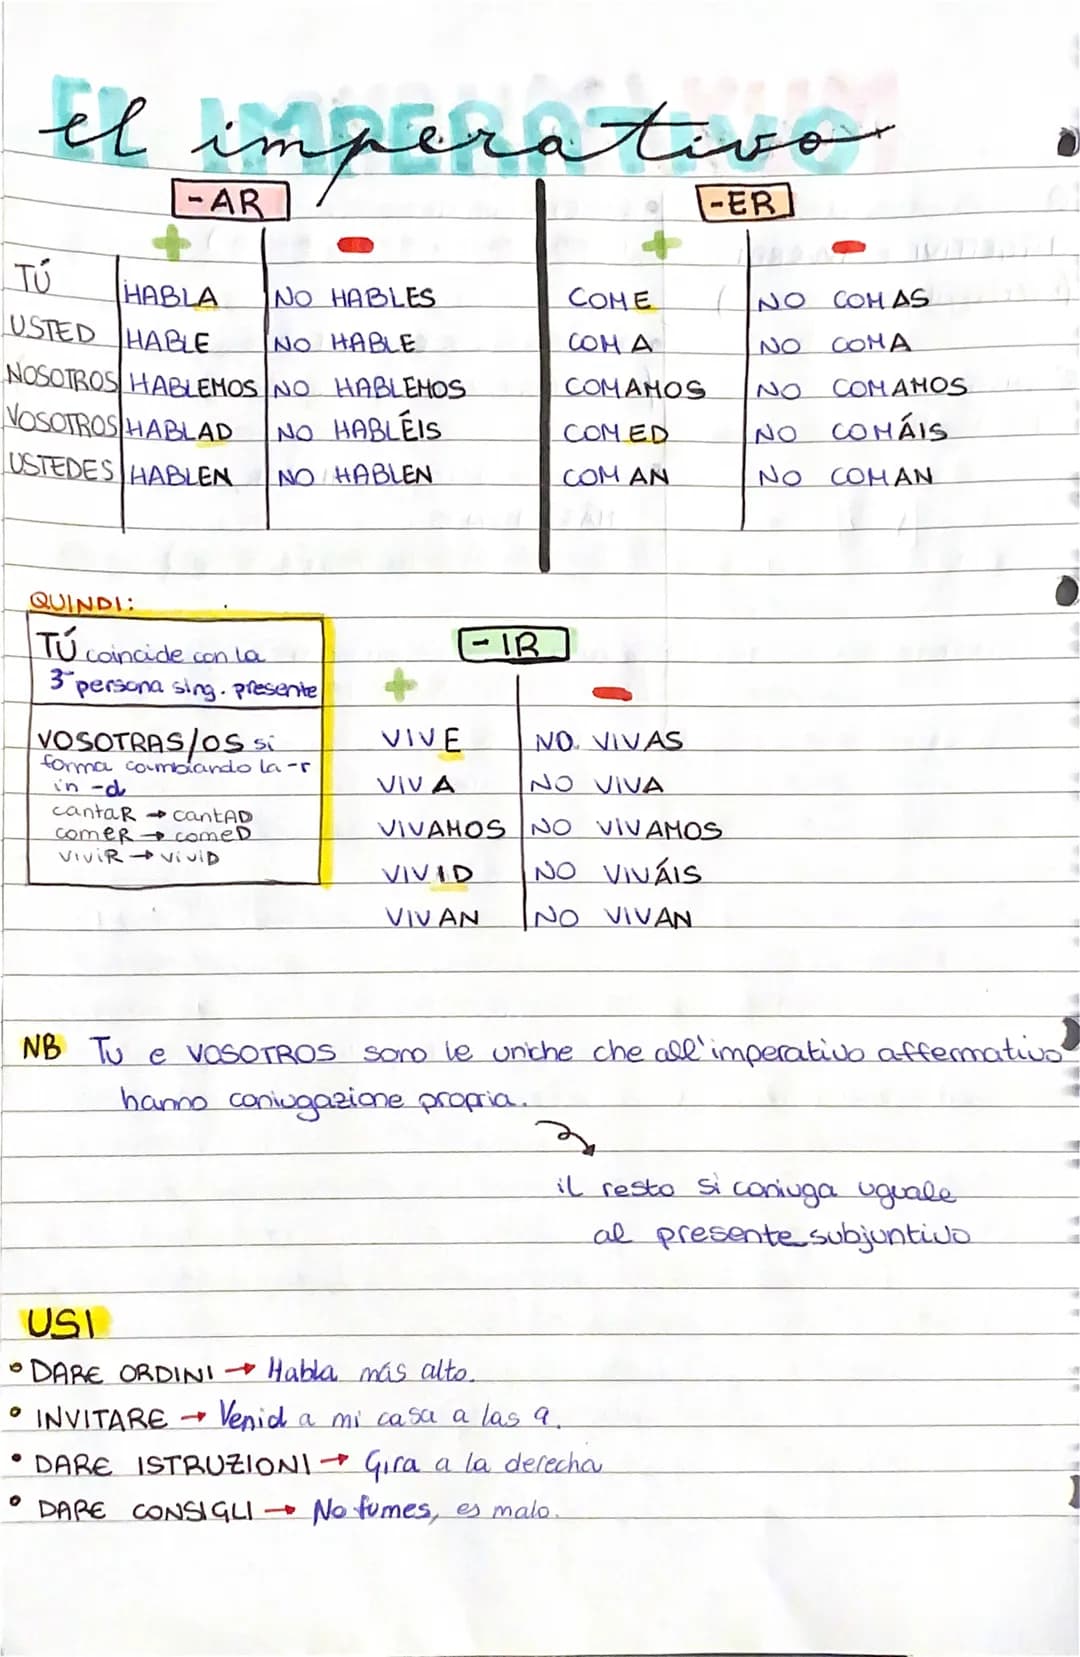 el imperativo
-AR
-ER
TÚ HABLA NO HABLES COME NO COMAS
USTED HABLE NO HABLE COMA NO COMA
NOSOTROS HABLEMOS NO HABLEMOS COMAMOS NO COMAMOS
VOSOTROS HABLAD NO HABLÉIS COMED NO COMÁIS
USTEDES HABLEN NO HABLEN COMAN NO COMAN
QUINDI:
TÚ coincide con la
3ª persona sing. presente
VOSOTRAS/OS si
forma cambiando la -r
in -d
cantaR → cantAD
comeR → comeD
viviR → viviD
-IR
VIVE NO VIVAS
VIVA NO VIVA
VIVAMOS NO VIVAMOS
VIVID NO VIVÁIS
VIVAN NO VIVAN
NB Tu e VOSOTROS sono le uniche che all'imperativo affermativo
hanno coniugazione propria.
il resto si coniuga uguale
al presente subjuntivo
USI
• DARE ORDINI → Habla más alto.
• INVITARE → Venid a mi casa a las 9.
• DARE ISTRUZIONI → Gira a la derecha
• DARE CONSIGLI → No fumes, es malo.